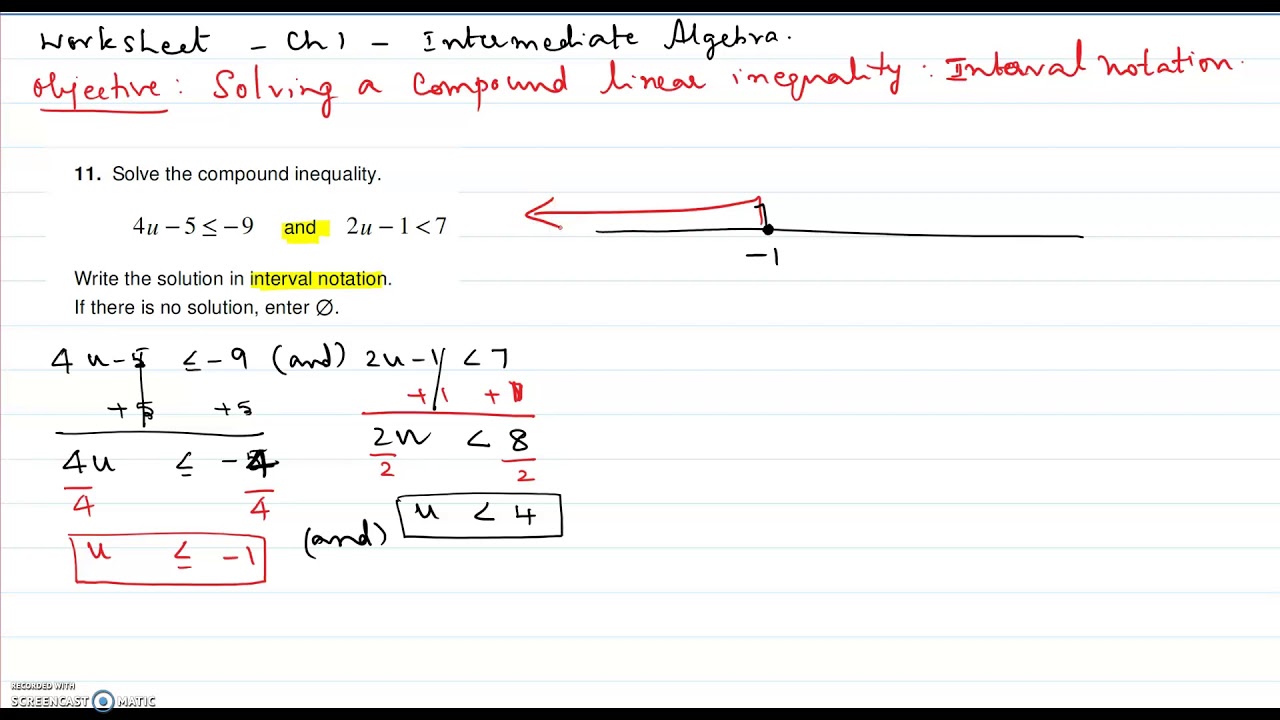 Worksheet - Ch 1 - Intermediate Algebra.
Objective : Solving a Compound linear inequality : Interval notation.
11. Solve the compound inequality.
4u − 5 ≤ −9 and 2u − 1 < 7
Write the solution in interval notation.
If there is no solution, enter ∅.
-1
4u-5 ≤ -9 (and) 2u-1 < 7
+5 +5 +1 +1
4u ≤ -4 2u < 8
4 4 2 2
u ≤ -1 (and) u < 4
RECORDED WITH
SCREENCAST MATIC